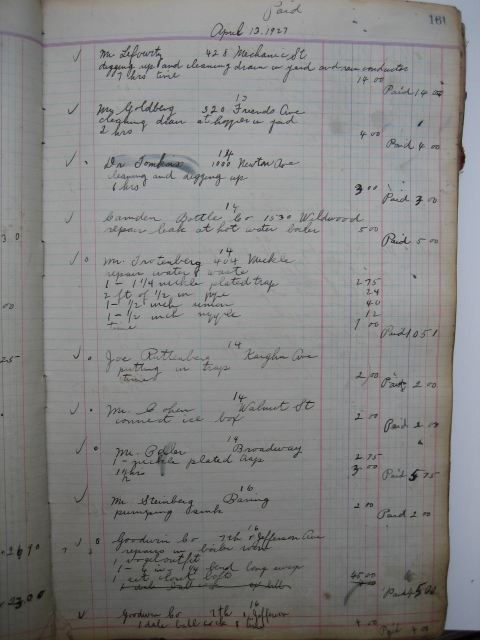 Paid
161
April 12, 1927
Mr Lefowitz 428 Mechanic St
digging up and cleaning drain in yard and rain conductor
7 hrs time 14 00
Paid 14 00
13
Mr Goldberg 320 Friends Ave
cleaning drain at hopper in yard
2 hrs 4 00
Paid 4 00
14
Dr Tomkins 1000 Newton Ave
cleaning and digging up
1 hrs 3 00
Paid 3 00
14
Camden Bottle Co 1530 Wildwood
repair leak at hot water boiler 5 00
Paid 5 00
14
Mr Trotenberg 404 Mickle
repair water & waste
1 - 1 1/4 nickle plated trap 2 75
2 ft of 1/2 in pipe 24
1 - 1/2 inch union 40
1 - 1/2 inch nipple 12
time 7 00
Paid 10 51
14
Joe Ruttenberg Kaighn Ave
putting in trap
time 2 00
Paid 2 00
14
Mr. Cohen Walnut St
connect ice box 2 00
Paid 2 00
14
Mr. Broadway
1 - nickle plated trap 2 75
1 1/2 hrs 3 00
Paid 5 75
16
Mr Steinberg Baring
pumping sink 2 00
Paid 2 00
16
Goodwin Co 7th & Jefferson Ave
repairs in boiler room
1 outfit
1 - 4 in 1/4 bend long
1 bolt 45 00
Paid 45 00
16
Goodwin Co 7th & Jefferson
1 ball cock & time 4 00
Paid 4 00
30
00
25
26 90
23.00